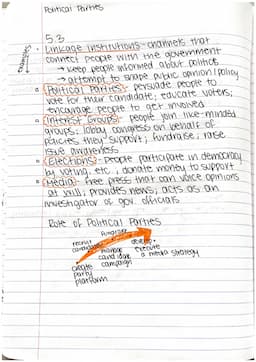 Political Parties
5.3
Linkage Institutions - channels that
connect people with the government
→ keep people informed about politics
→ attempt to shape public opinion/policy
examples
Political Parties - persuade people to
vote for their candidate; educate voters;
encourage people to get involved
Interest Groups - people join like-minded
groups; lobby congress on behalf of
policies they support; fundraise; raise
issue awareness
Elections - People participate in democracy
by voting, etc, donate money to support
Media - free press that can voice opinions
at will; provides news; acts as an
investigator of gov. officials
Role of Political Parties
create party platform
recruit candidates
manage candidate campaign
fundraise
develop, execute a media strategy